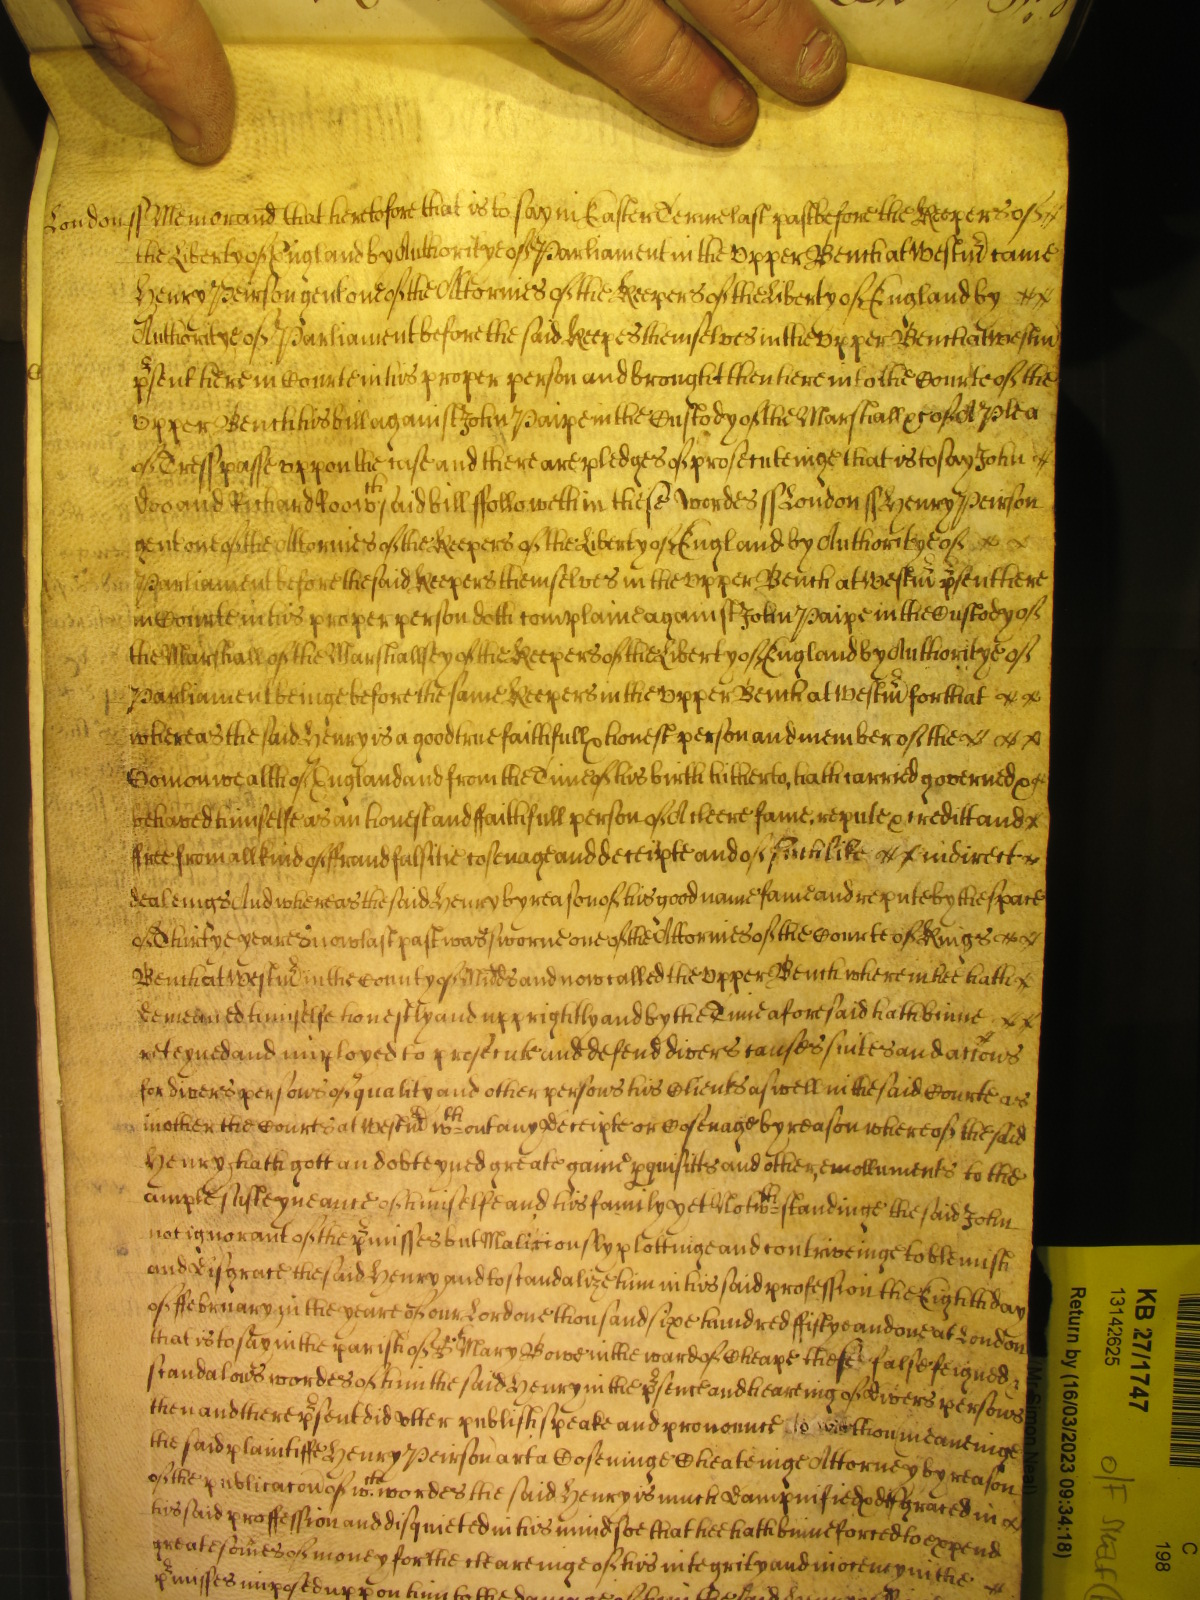 London ss Memorand that heretofore that is to say in Easter Terme last past before the Keepers of
the Liberty of England by Authoritye of Parliament in the Upper Bench at Westm̃ came
Henry Peirson gent one of the Attornies of the Keepers of the Liberty of England by
Authoritye of Parliament before the said Keepes themselves in the Upper Bench at Westm̃
p̃sent here in Courte in his proper person and brought then here into the Courte of the
Upper Bench his bill against John Paipe in the Custody of the Marshall &c of A Plea
of Tresspasse uppon the case and there are pledges of prosecuteinge that is to say John
Doo and Richard Roo wᶜʰ said bill ffolloweth in these wordes ss London ss Henry Peirson
gent one of the Attornies of the Keepers of the Liberty of England by Authoritye of
Parliament before the said Keepers themselves in the Upper Bench at Westm̃ p̃sent here
in Courte in his proper person doth complaine against John Paipe in the Custody of
the Marshall of the Marshallsey of the Keepers of the Liberty of England by Authoritye of
Parliament beinge before the same Keepers in the Upper Bench at Westm̃ for that
whereas the said Henry is a good true faithfull & honest person and member of the
Comonwealth of England and from the Time of his birth hitherto, hath carried governed &
behaved himselfe as an honest and ffaithfull person of A cleere fame, repute & creditt and
ffree from all kind of ffraud falsitie cosenage and deceipte and of such like indirect
dealeings And whereas the said Henry by reason of his good name fame and repute by the space
of Thirtye yeares now last past was sworne one of the Attornies of the Courte of Kings
Bench at Westm̃ in the County of Midds and now called the Upper Bench wherein hee hath
demeaned himselfe honestly and upprightly and by the Time aforesaid hath binne
reteyned and imployed to prosecute and defend divers causes suites and actions
for divers persons of quality and other persons his Clients aswell in the said Courte as
in other the Courts at Westm̃ wᵗʰout any Deceipte or Cosenage by reason whereof the said
Henry hath gott and obteyned greate gaine p̱quisitts and other emolluments to the
ample susteyneance of himselfe and his family yet Notwᵗʰstandinge the said John
not ignorant of the p̃misses but Maliciously plottinge and contriveinge to blemish
and Disgrace the said Henry and to scandalize him in his said profession the Eighth day
of ffebruary in the yeare of our Lord one thousand sixe hundred ffiftye and one at London
that is to say in the parish of Sᵗ Mary Bowe in the ward of Cheape these false feigned
scandalows wordes of him the said Henry in the p̃sence and heareing of Divers persons
then and there p̃sent did utter publish speake and pronounce thou meaneinge
the said plaintiffe Henry Peirson art a Coseninge Cheateinge Attorney by reason
of the publicacon of wᶜʰ wordes the said Henry is much Dampnified & disgraced in
his said proffession and disquieted in his mind soe that hee hath binne forced to expend
greate som̃es of money for the cleareinge of his integrity and inocency in the
p̃misses imposed uppon him to the damage of him the said Henry
KB 27/1747
13142625
Return by (16/03/2023 09:34:18)
Simon Neal)
C
198